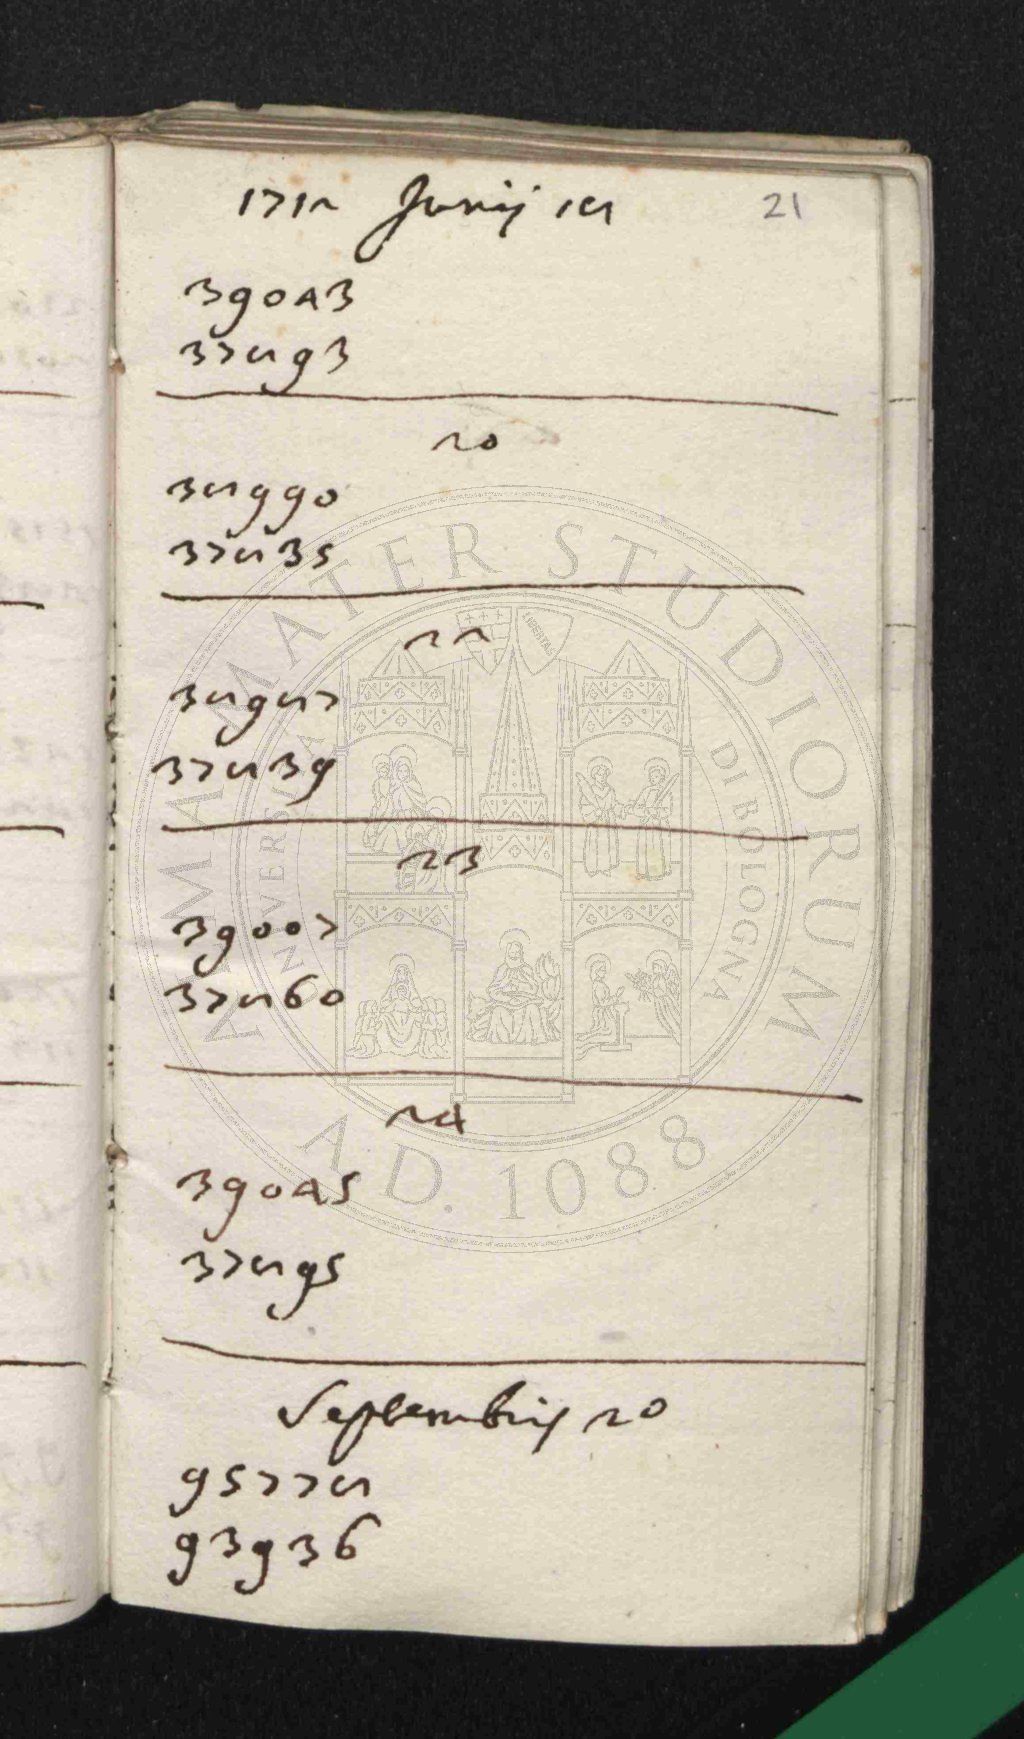 1712 Junij 18
21
39043
37893
20
38990
37835
22
38987
37839
23
39007
37860
24
39045
37895
Septembris 20
95778
93936
ALMA MATER STUDIORUM
A.D. 1088
UNIVERSITÀ DI BOLOGNA
LIBERTAS